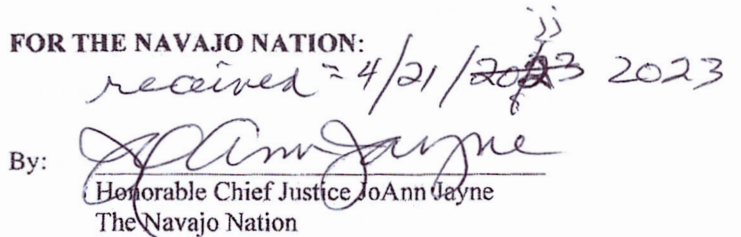 FOR THE NAVAJO NATION:
jj
received = 4/21/2023 2023
By: JoAnn Jayne
Honorable Chief Justice JoAnn Jayne
The Navajo Nation